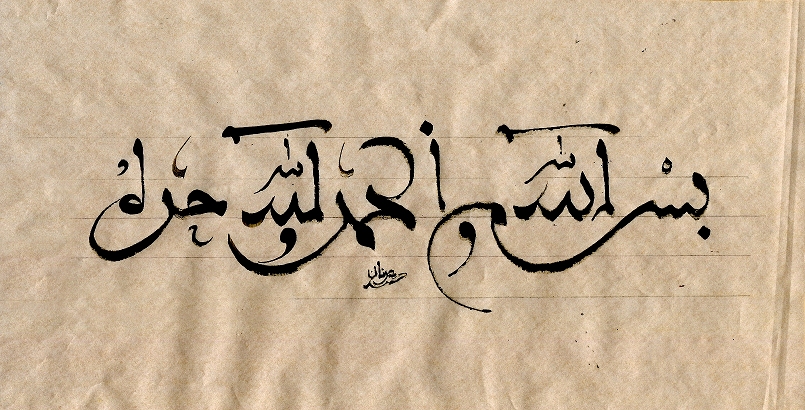 بسم الله والحمد لله وحده